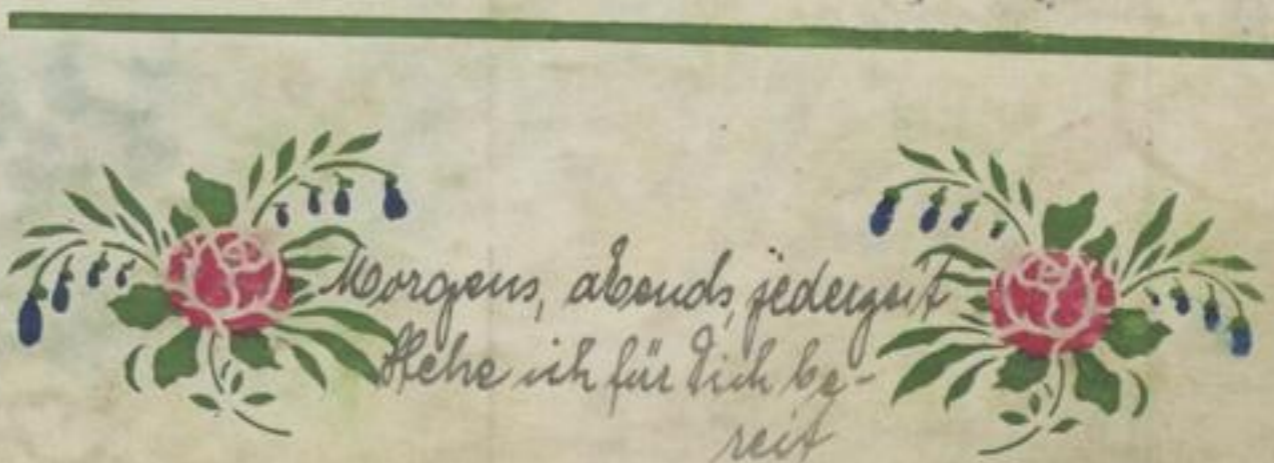 Morgens, abends, jederzeit
Stehe ich für Dich be-
reit